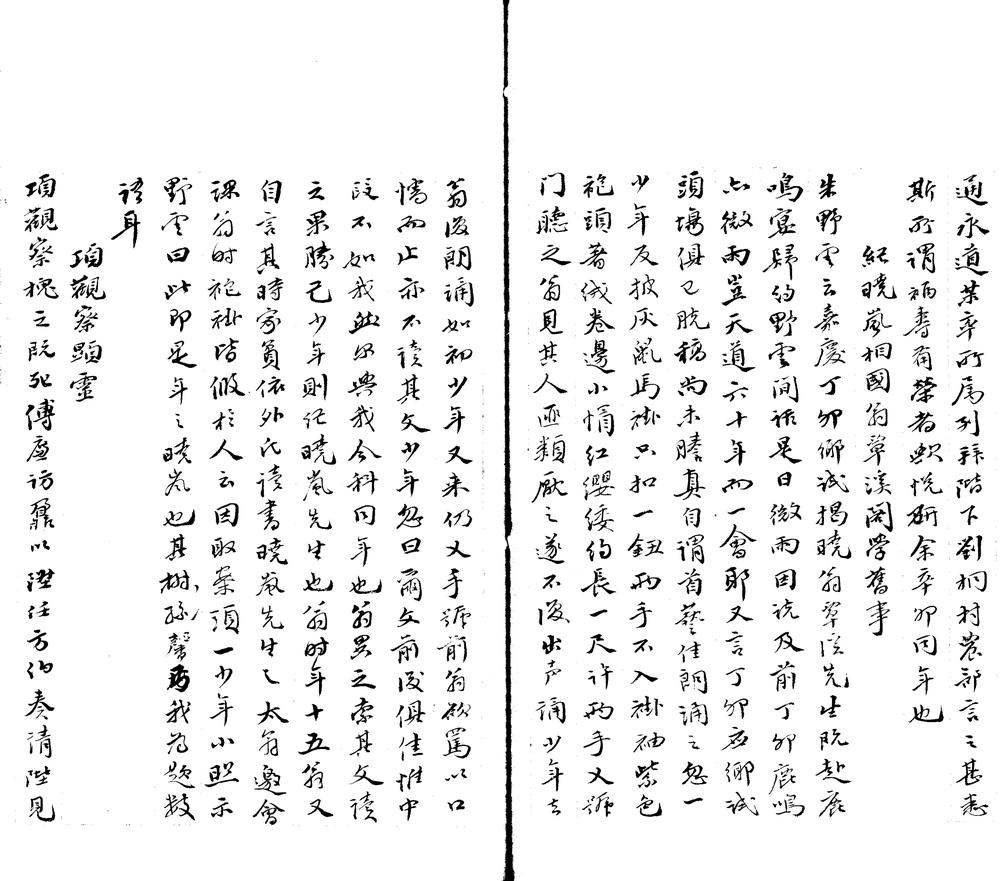 通永道某率所属列拜階下劉桐村農部言之甚悉
斯所謂裲書有榮者歟悦研余辛卯同年也
紀曉嵐相國翁覃溪閣學舊事
朱野雲云嘉慶丁卯鄉試揭曉翁覃溪先生既赴鹿
鳴宴歸約野雲閒話是日微雨因説及前丁卯鹿鳴
亦微雨豈天道六十年而一會耶又言丁卯应鄉試
頭場俱已脱稿尚未謄真自謂首藝佳朗誦之忽一
少年反披灰鼠馬褂只扣一鈕兩手不入褂袖紫色
袍頭著絨卷邊小帽紅纓綏約長一尺許兩手叉號
门聽之翁見其人匪類厭之遂不復出声誦少年去
翁復朗誦如初少年又来仍叉手號前翁欲罵以口
懦而止亦不读其文少年忽曰爾文前後俱佳惟中
段不如我然尔與我今科同年也翁異之索其文读
之果勝己少年則紀曉嵐先生也翁时年十五翁又
自言其時家貧依外氏读書曉嵐先生之太翁邀會
課翁时袍褂皆假於人云因取案頭一少年小照示
野雲曰此即是年之曉嵐也其樹孫馨為我为題数
語耳
項觀察顯靈
項觀察槐之既死傅廬访鼐以陞任方伯奏清陛見